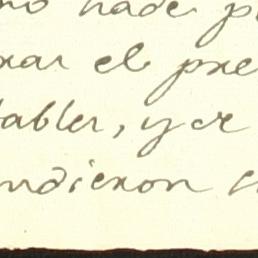 no nade p
rar el pre
tables, y er
ndieron c